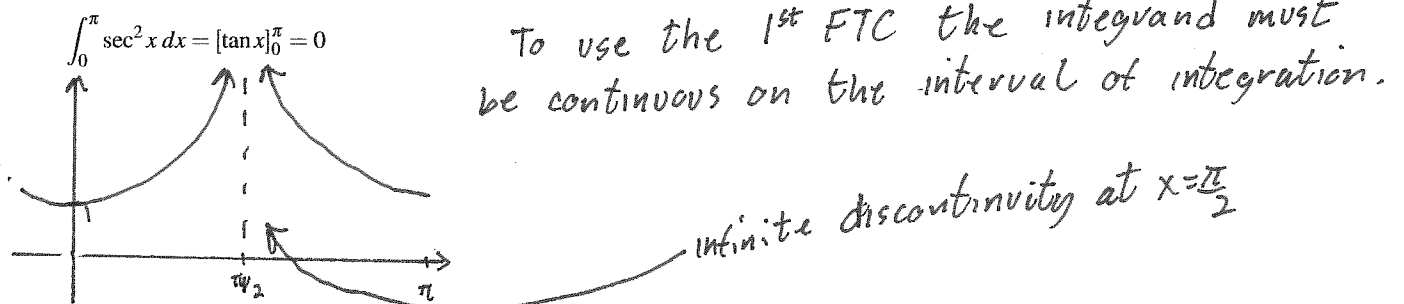 ∫₀^π sec² x dx = [tan x]₀^π = 0
To use the 1st FTC the integrand must
be continuous on the interval of integration.
infinite discontinuity at x=π/2
1
π/2
π